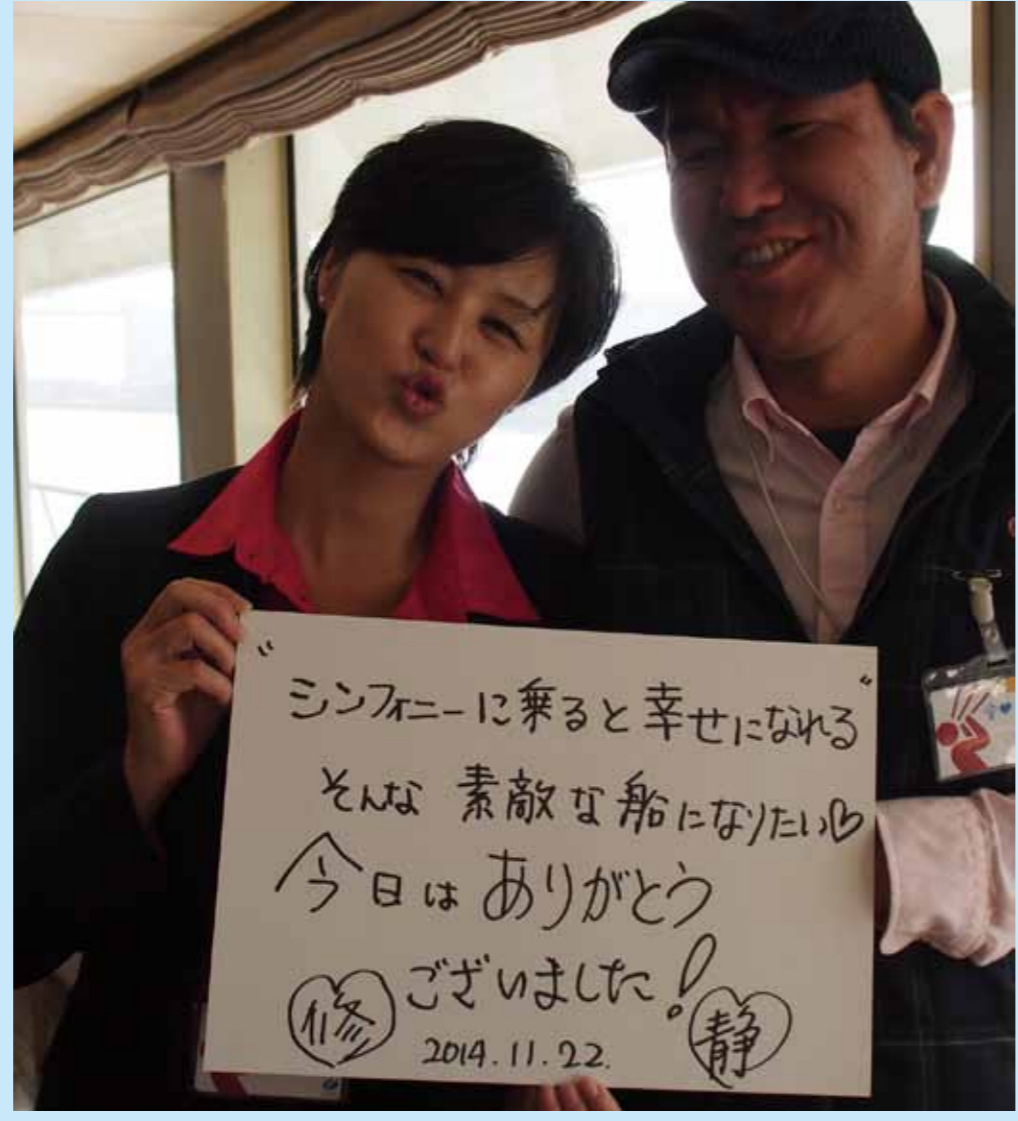 "シンフォニーに乗ると幸せになれる"
そんな 素敵な船になりたい♡
今日は ありがとう
ございました!
修 2014.11.22. 静